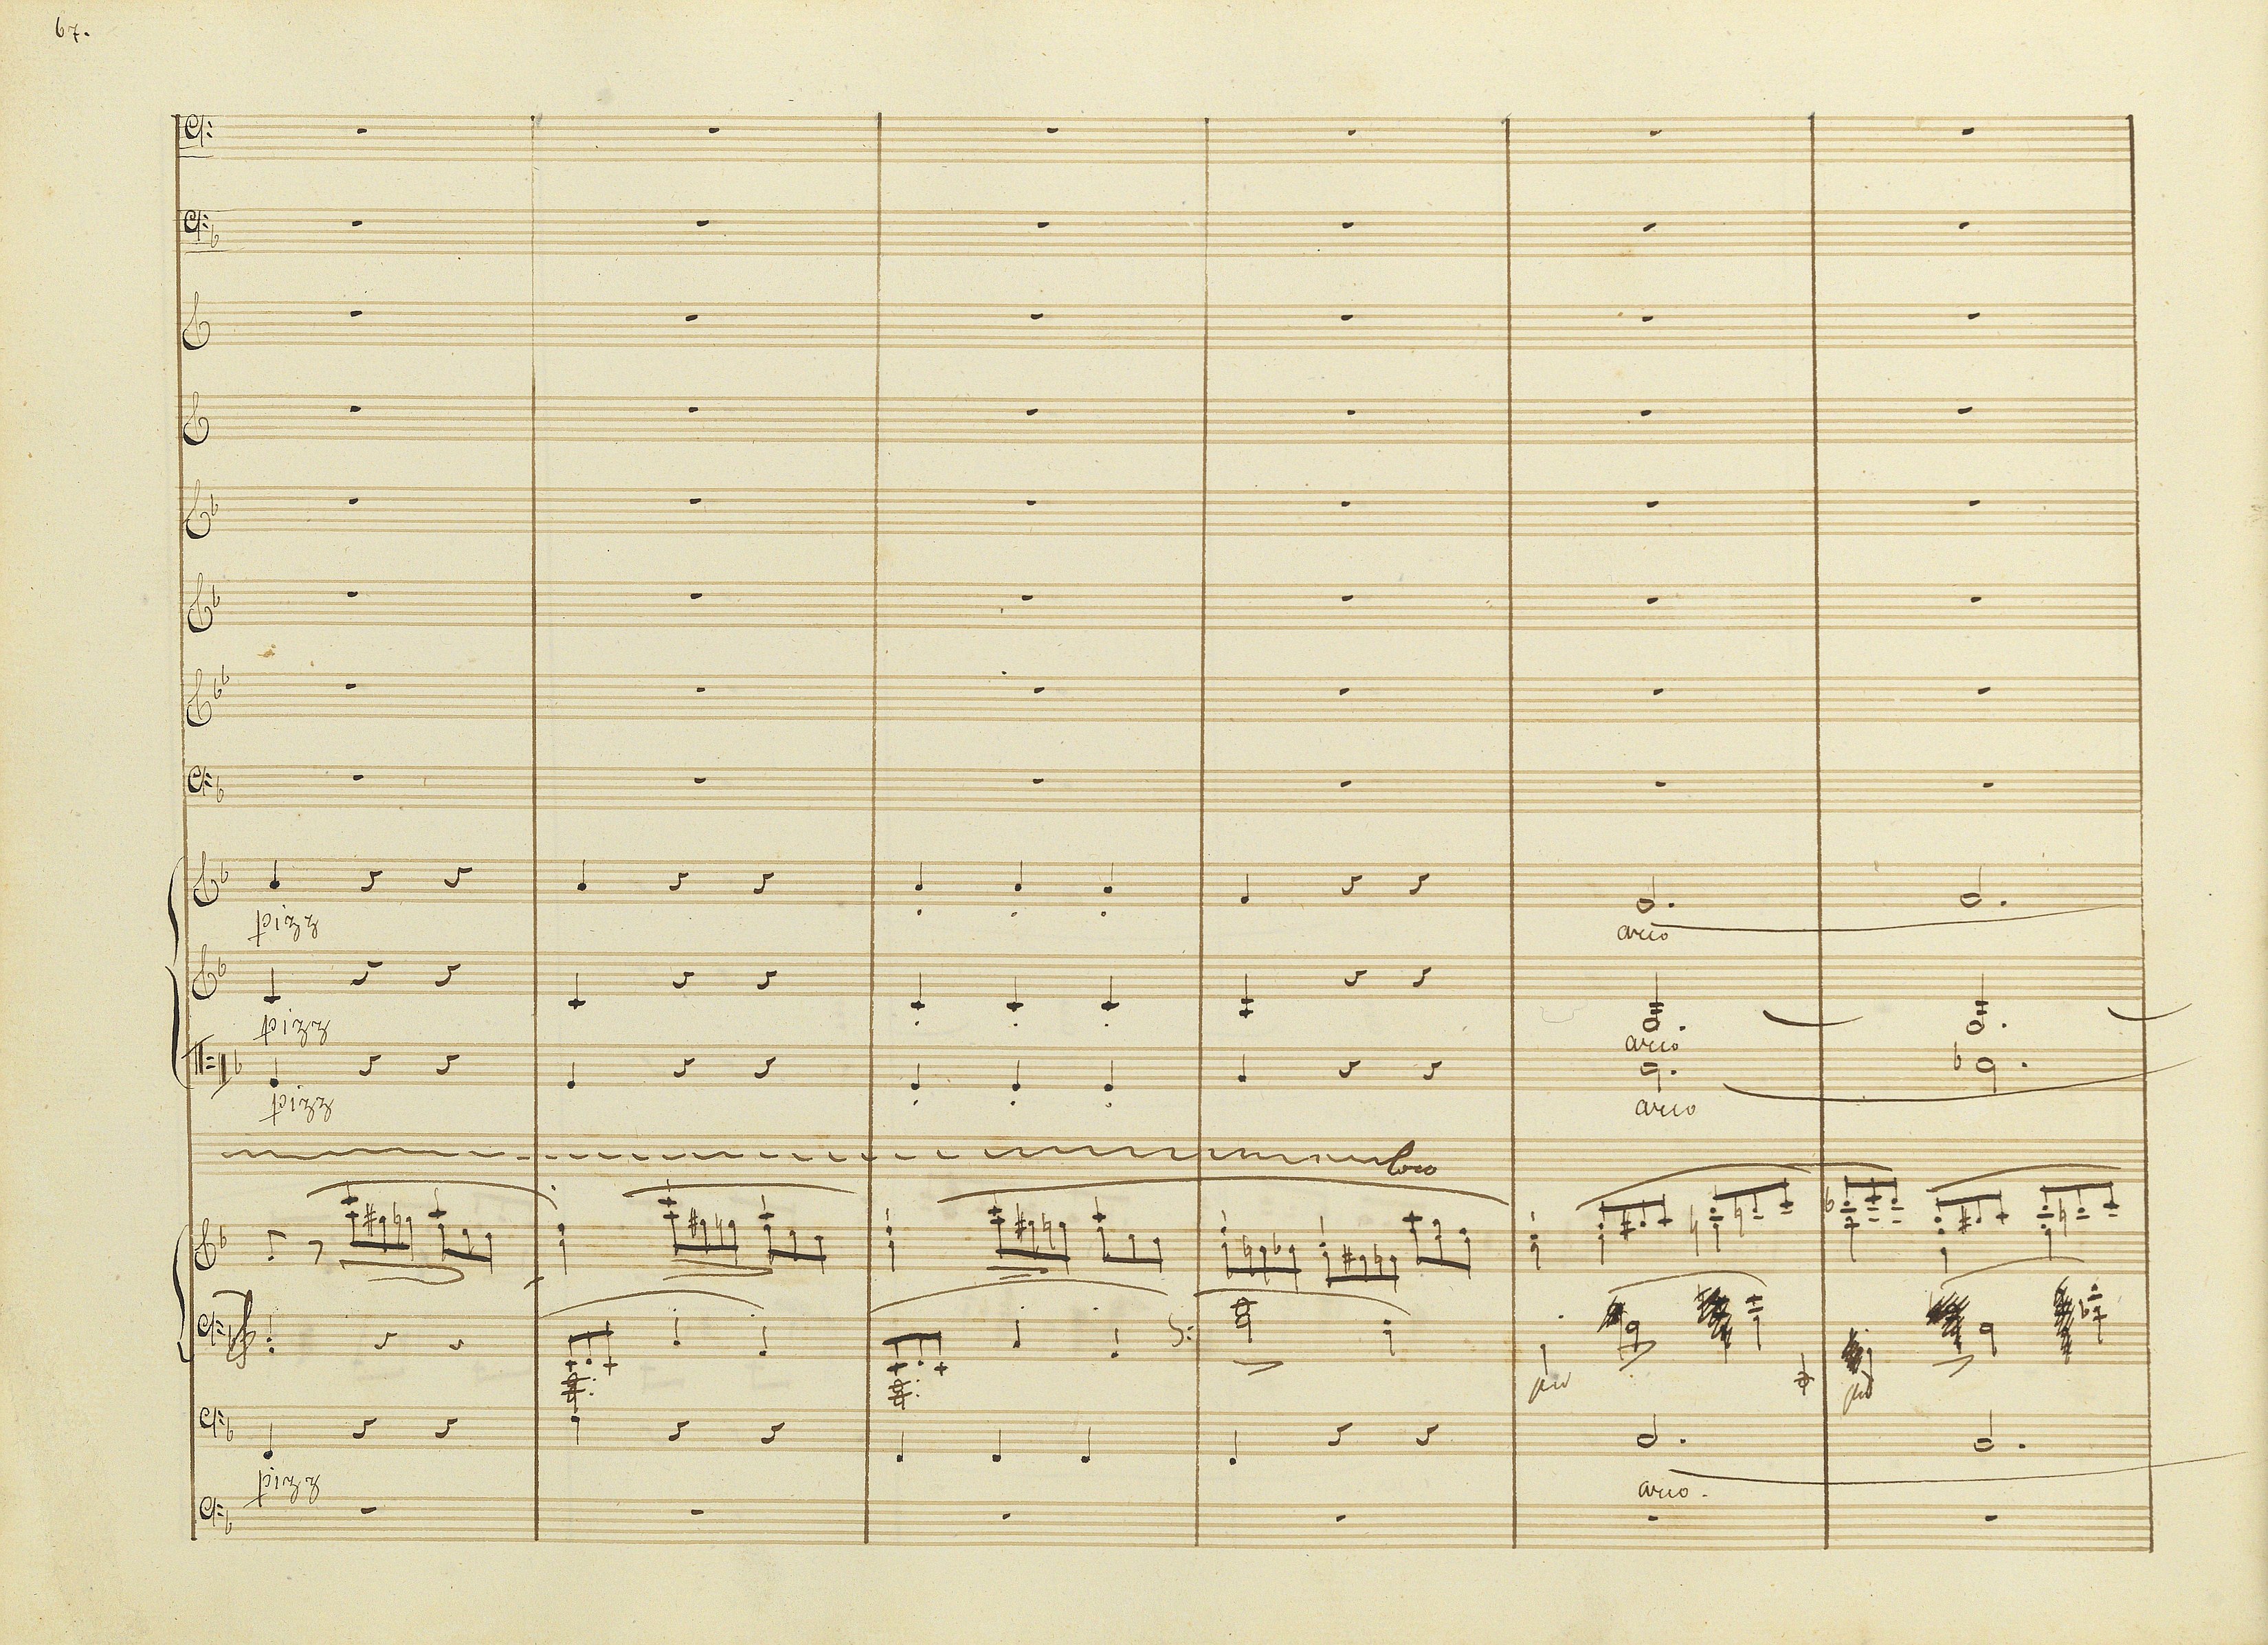 67.
pizz
arco
pizz
arco
pizz
arco
loco
pizz
arco.